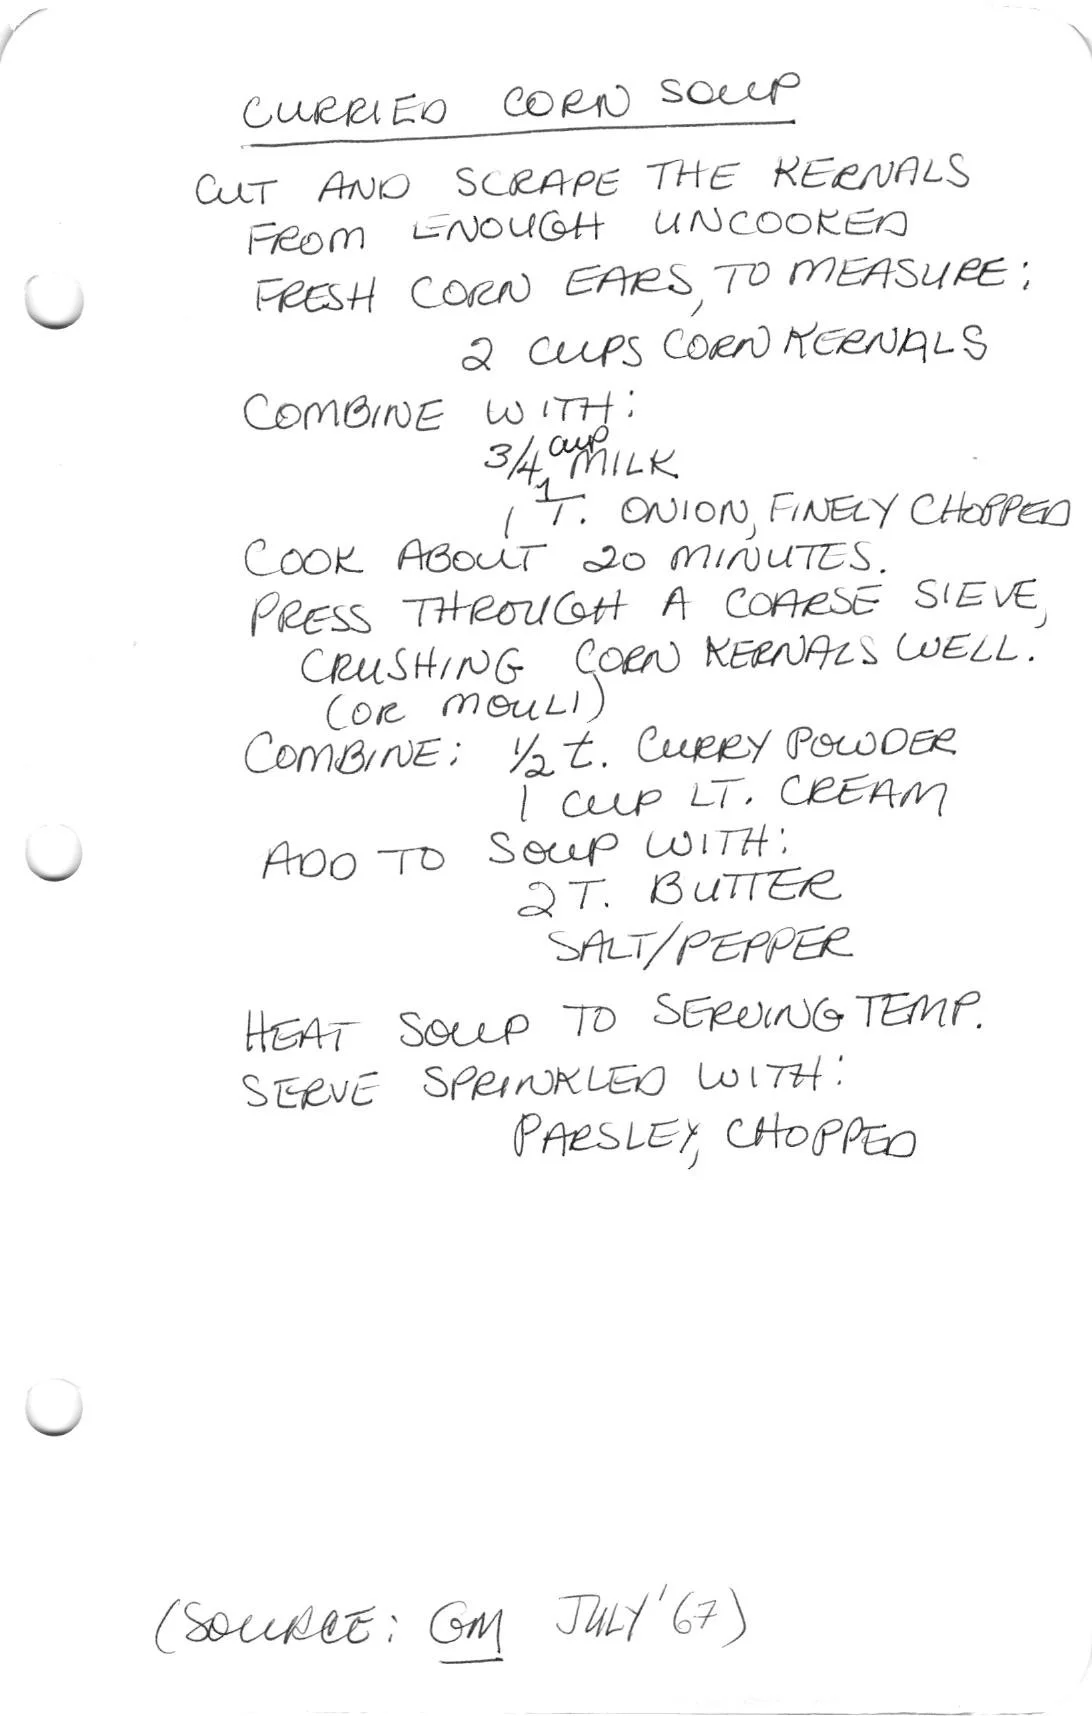 CURRIED CORN SOUP
CUT AND SCRAPE THE KERNALS
FROM ENOUGH UNCOOKED
FRESH CORN EARS, TO MEASURE:
2 CUPS CORN KERNALS
COMBINE WITH:
3/4 cup MILK
1 T. ONION, FINELY CHOPPED
COOK ABOUT 20 MINUTES.
PRESS THROUGH A COARSE SIEVE,
CRUSHING CORN KERNALS WELL.
(OR MOULI)
COMBINE: 1/2 t. CURRY POWDER
1 CUP LT. CREAM
ADD TO SOUP WITH:
2 T. BUTTER
SALT/PEPPER
HEAT SOUP TO SERVING TEMP.
SERVE SPRINKLED WITH:
PARSLEY, CHOPPED
(SOURCE: GM JULY '67)